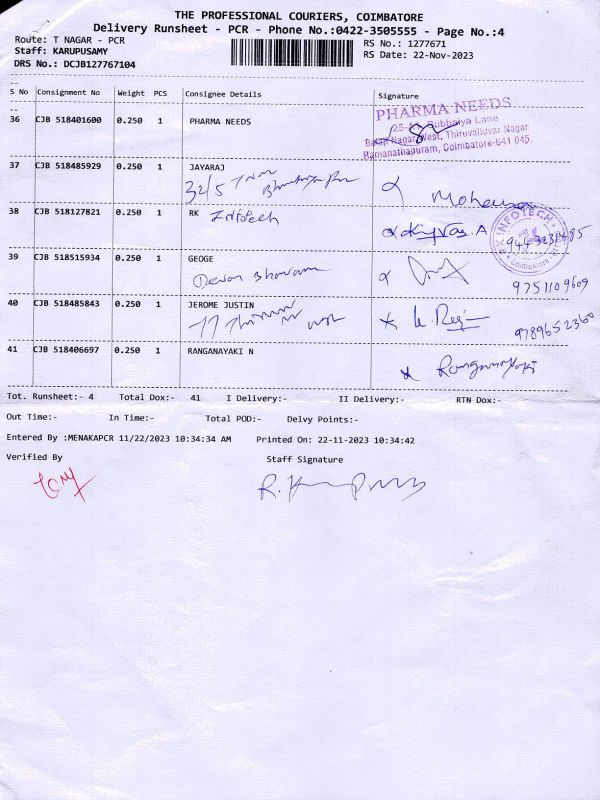 THE PROFESSIONAL COURIERS, COIMBATORE
Delivery Runsheet - PCR - Phone No.:0422-3505555 - Page No.:4
Route: T NAGAR - PCR
Staff: KARUPUSAMY
DRS No.: DCJB127767104
RS No.: 1277671
RS Date: 22-Nov-2023
S No Consignment No Weight PCS Consignee Details Signature
36 CJB 518401600 0.250 1 PHARMA NEEDS
PHARMA NEEDS
Nagar West, Thiruvalluvar Nagar
Ramanathapuram, Coimbatore-641 045
37 CJB 518485929 0.250 1 JAYARAJ
32/5
Mohana
38 CJB 518127821 0.250 1 RK Infotech
RK INFOTECH
Coimbatore
39 CJB 518515934 0.250 1 GEOGE
Devan Bhavanam
9751109609
40 CJB 518485843 0.250 1 JEROME JUSTIN
77
9789652360
41 CJB 518406697 0.250 1 RANGANAYAKI N
Ranganayaki
Tot. Runsheet:- 4 Total Dox:- 41 I Delivery:- II Delivery:- RTN Dox:-
Out Time:- In Time:- Total POD:- Delvy Points:-
Entered By :MENAKAPCR 11/22/2023 10:34:34 AM Printed On: 22-11-2023 10:34:42
Verified By Staff Signature